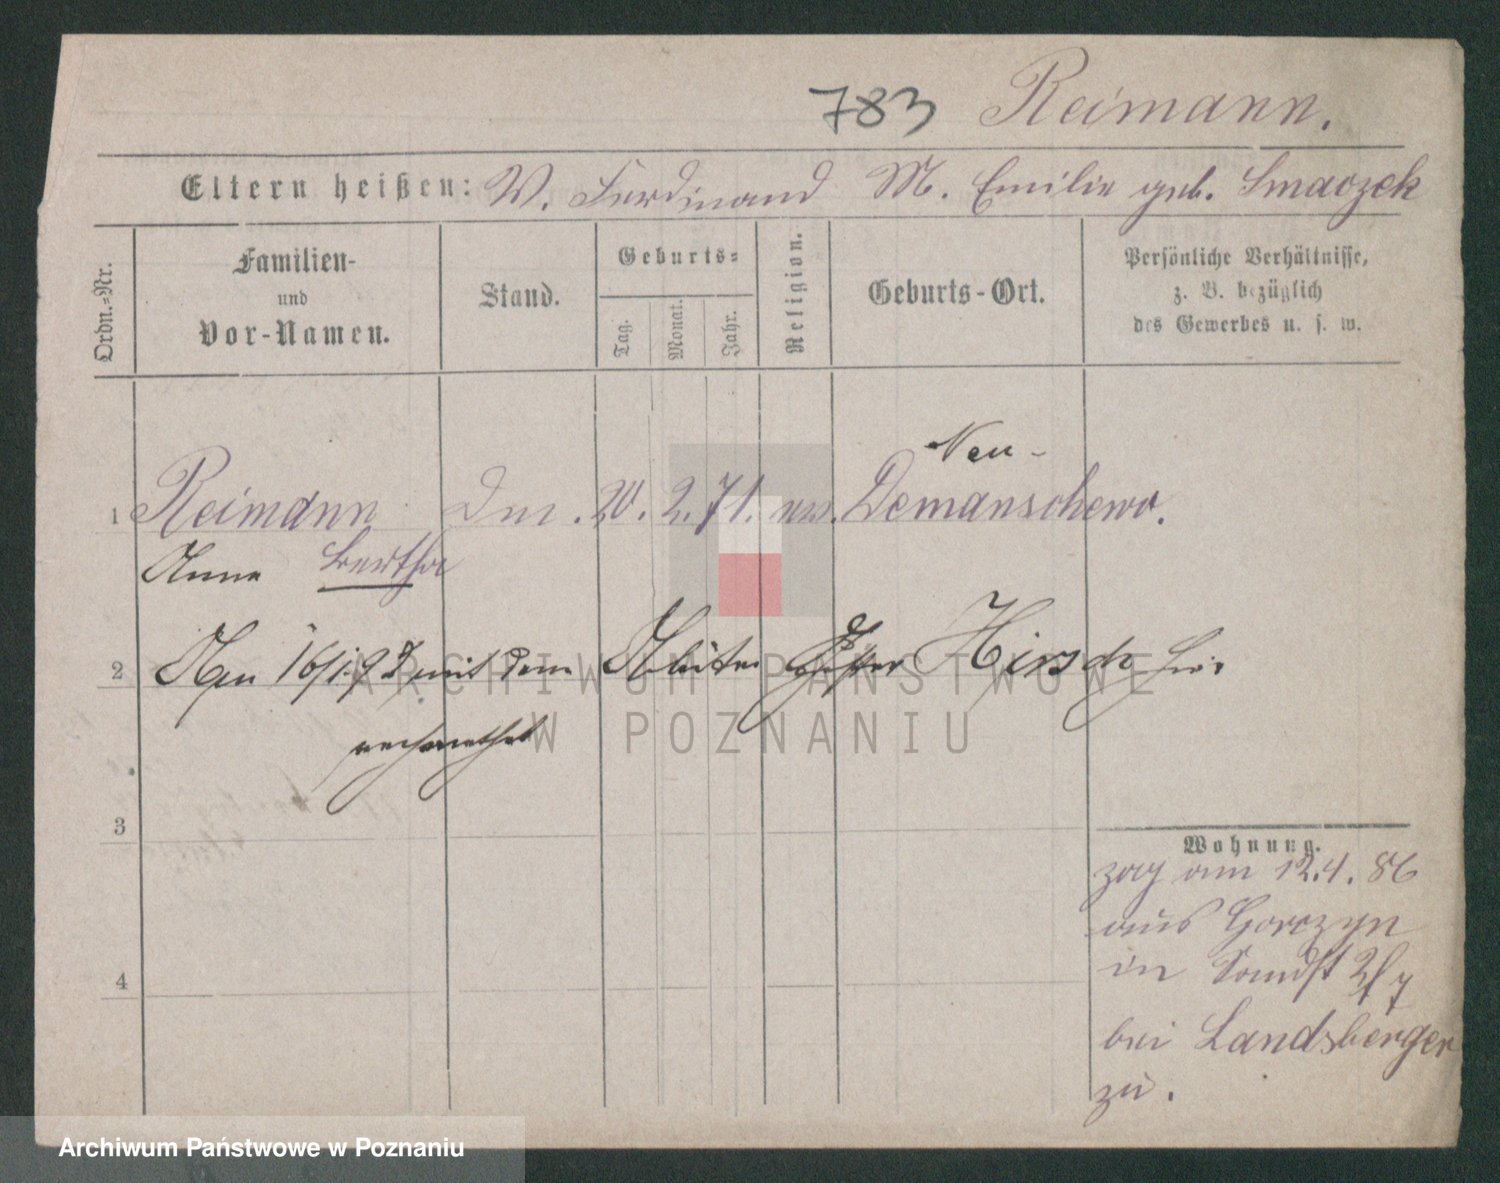 783 Reimann.
Eltern heißen: V. Ferdinand M. Emilie geb. Smaczek
Ordn.-Nr.
Familien-
und
Vor-Namen.
Stand.
Geburts-
Tag.
Monat.
Jahr.
Religion.
Geburts-Ort.
Persönliche Verhältnisse,
z. B. bezüglich
des Gewerbes u. s. w.
Neu-
1 Reimann Dm. 20. 2. 71. ev. Demanschewo.
Anna Bertha
2 Am 16/1 92 mit dem Arbeiter Hirsch hier
verheirathet
3
Wohnung.
zog am 12.4.86
aus Gorczyn
in Sandst 2/7
4
bei Landsberger
zu.
ARCHIWUM PAŃSTWOWE
W POZNANIU
Archiwum Państwowe w Poznaniu